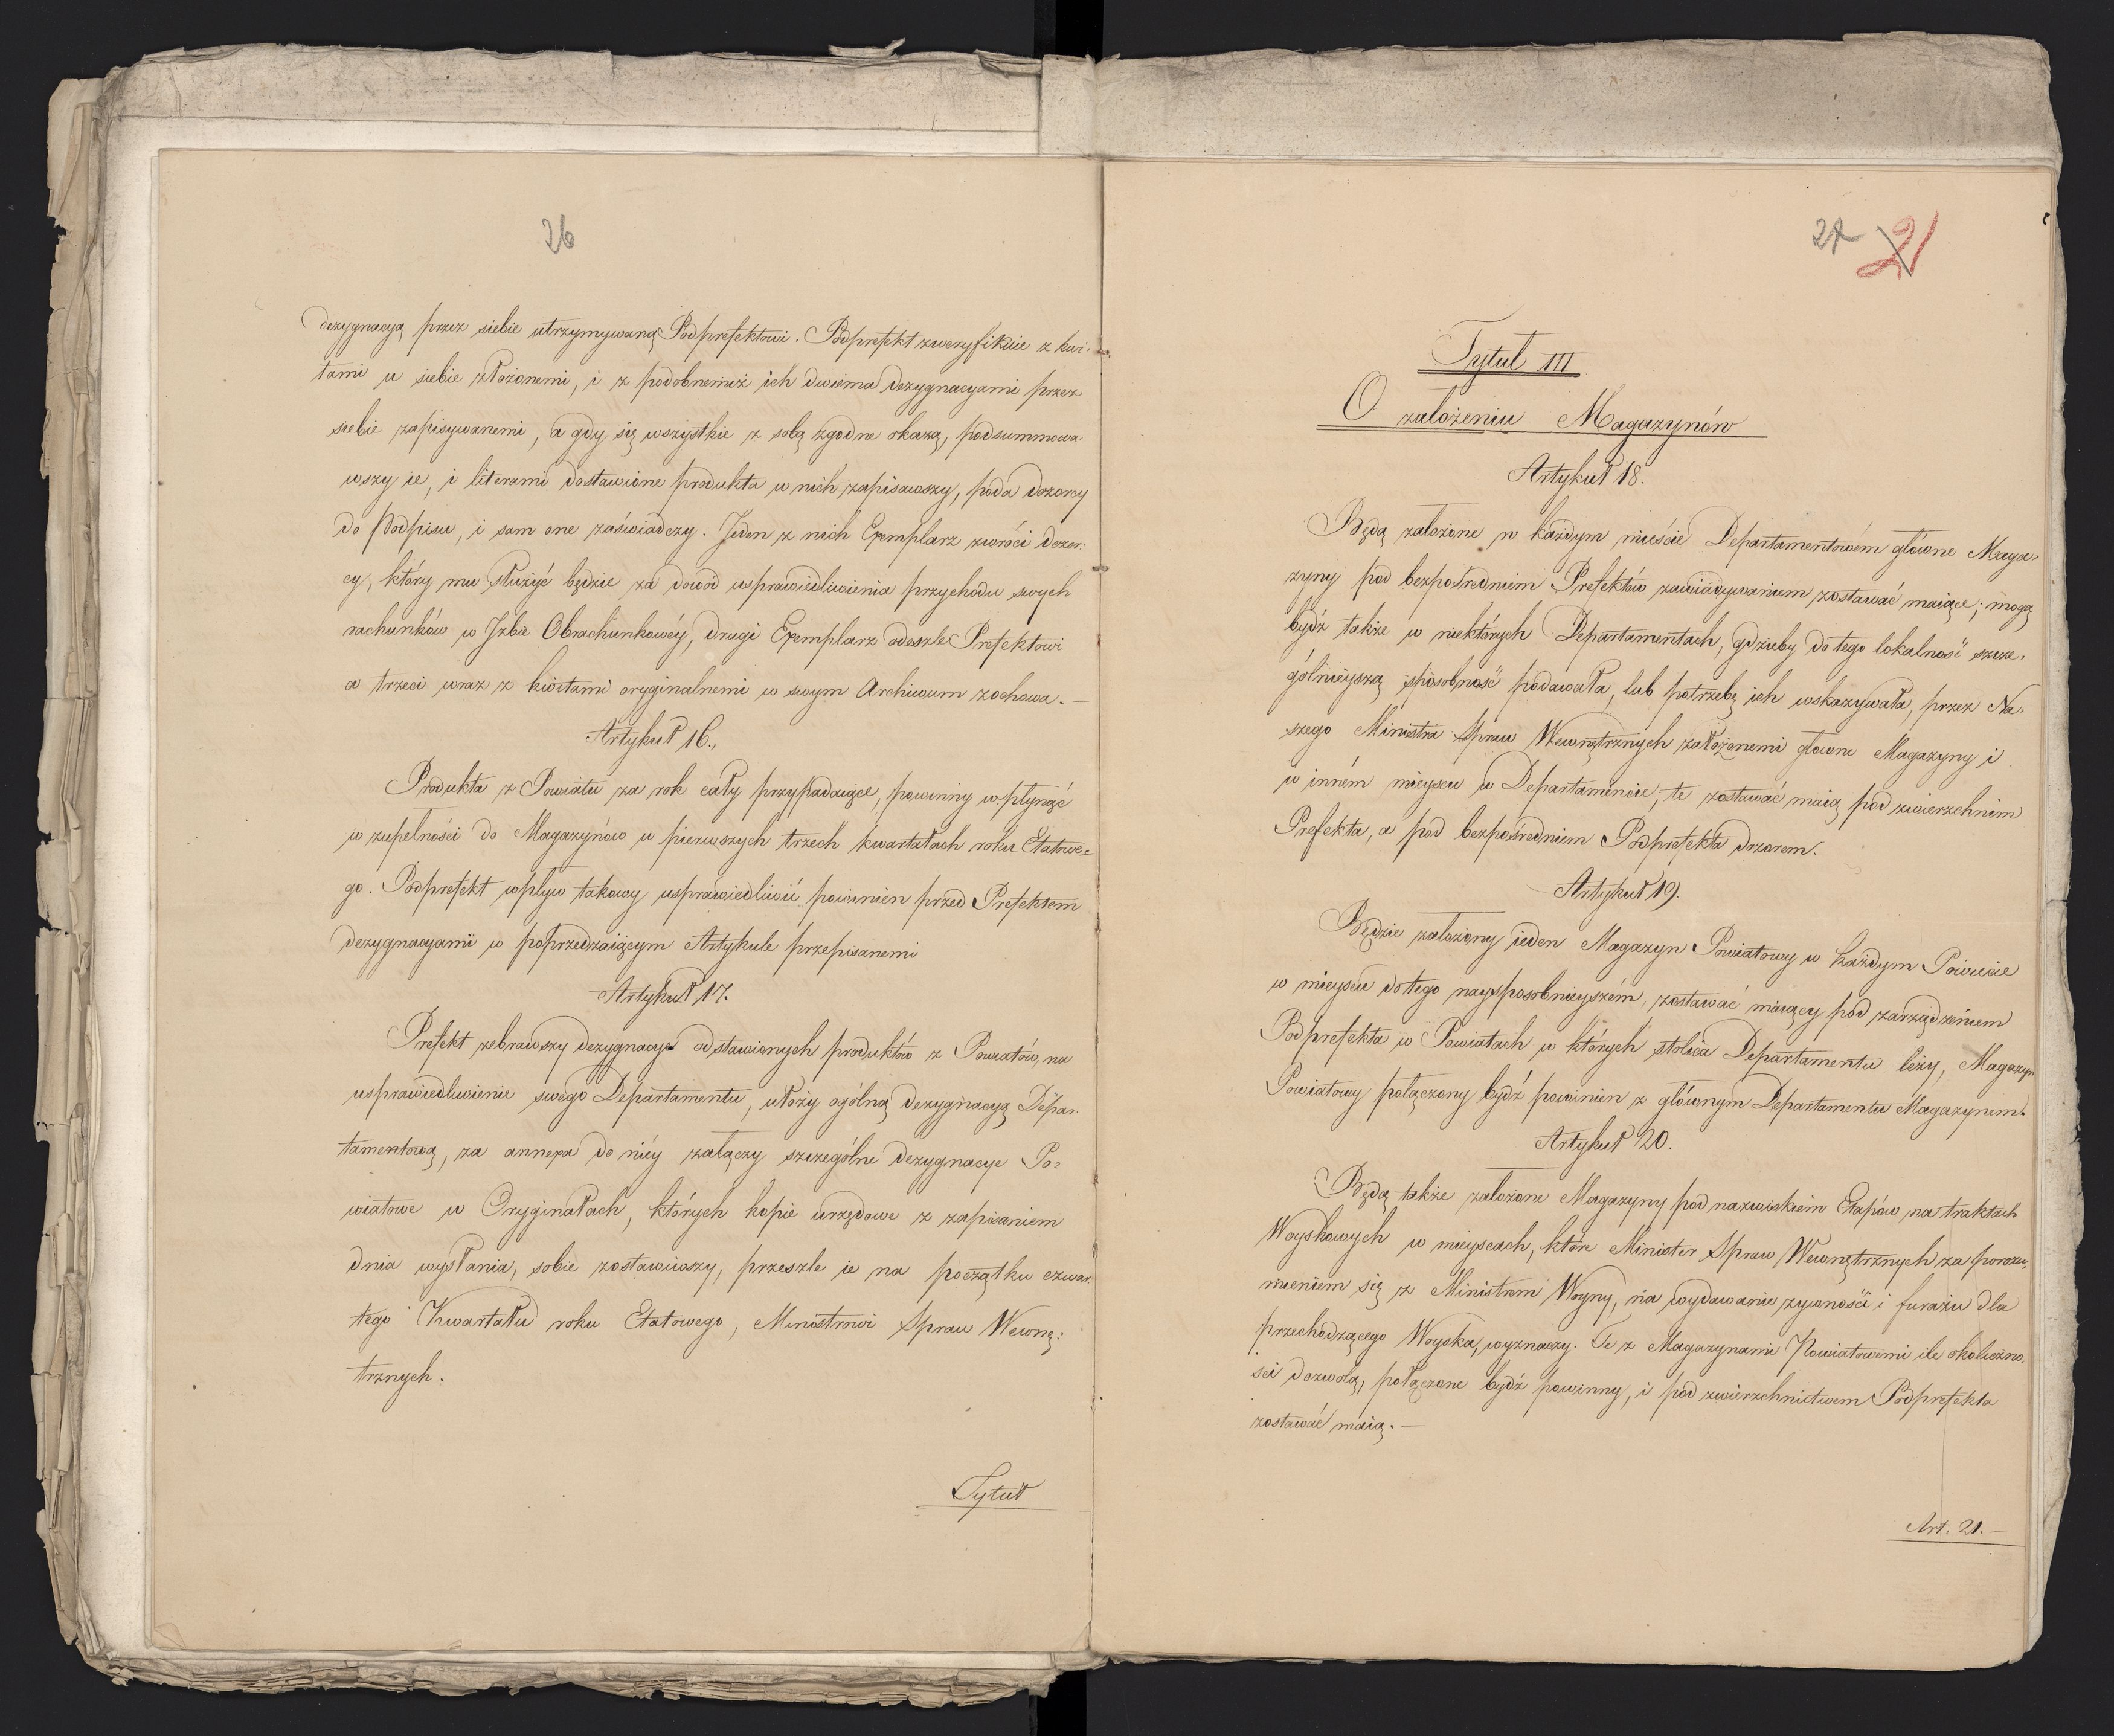 26
dezygnacyą przez siebie utrzymywaną Podprefektowi. Podprefekt zweryfikuie z kwi-
tami u siebie złożonemi, i z podobnemiż ich dwiema dezygnacyami przez
siebie zapisywanemi, a gdy się wszystkie z sobą zgodne okażą, podsummowa-
wszy ie, i literami dostawione produkta w nich zapisawszy, poda dozorcy
do podpisu, i sam one zaświadczy. Jeden z nich Exemplarz zwróci dozor:
cy, który mu służyć będzie za dowód usprawiedliwienia przychodu swych
rachunków w Jzbie Obrachunkowéy, drugi Exemplarz odeszle Prefektowi
a trzeci wraz z kwitami oryginalnemi w swym Archiwum zachowa. —
Artykuł 16.,
Produkta z Powiatu za rok cały przypadaiące, powinny wpłynąć
w zupelności do Magazynów w pierwszych trzech kwartałach roku Etatowe=
go. Podprefekt wpływ takowy usprawiedliwić powinien przed Prefektem
dezygnacyami w poprzedzaiącym Artykule przepisanemi
Artykuł 17.
Prefekt zebrawszy dezygnacye odstawionych produktów z Powiatów, na
usprawiedliwienie swego Departamentu, ułoży ogólną dezygnacyą Depar-
tamentową, za annexa do niéy załączy szczególne dezygnacye Po=
wiatowe w Oryginałach, których kopie urzędowe z zapisaniem
dnia wysłania, sobie zostawiwszy, przeszle ie na początku czwar-
tego Kwartału roku Etatowego, Ministrowi Spraw Wewnę:
trznych.
Tytuł
27 21
Tytul III
O założeniu Magazynów
Artykuł 18.
Będą założone w każdym mieście Departamentowém główne Maga-
zyny pod bezpośredniem Prefektów zawiadywaniem zostawać maiące; mogą
bydź także w niektórych Departamentach, gdzieby do tego lokalność szcze-
gólnieyszą sposobność podawała, lub potrzebę ich wskazywała, przez Na-
szego Ministra Spraw Wewnętrznych założonemi główne Magazyny i
w inném mieyscu w Departamencie; te zostawać maią pod zwierzchnim
Prefekta, a pod bezpośredniem Podprefekta dozorem.
Artykuł 19.
Będzie założony ieden Magazyn Powiatowy w każdym Powiecie
w mieyscu do tego naysposobnieyszém, zostawać maiący pod zarządzeniem
Podprefekta w Powiatach w których stolica Departamentu leży, Magazyn
Powiatowy połączony bydź powinien z głównym Departamentu Magazynem.
Artykuł 20.
Będą także założone Magazyny pod nazwiskiem Etapów na traktach
Woyskowych w mieyscach, które Minister Spraw Wewnętrznych za porozu-
mieniem się z Ministrem Woyny, na wydawanie żywności i furażu dla
przechodzącego Woyska, wyznaczy. Te z Magazynami Powiatowemi ile okoliczno-
ści dozwolą, połączone bydź powinny, i pod zwierzchnictwem Podprefekta
zostawać maią. —
Art. 21. —